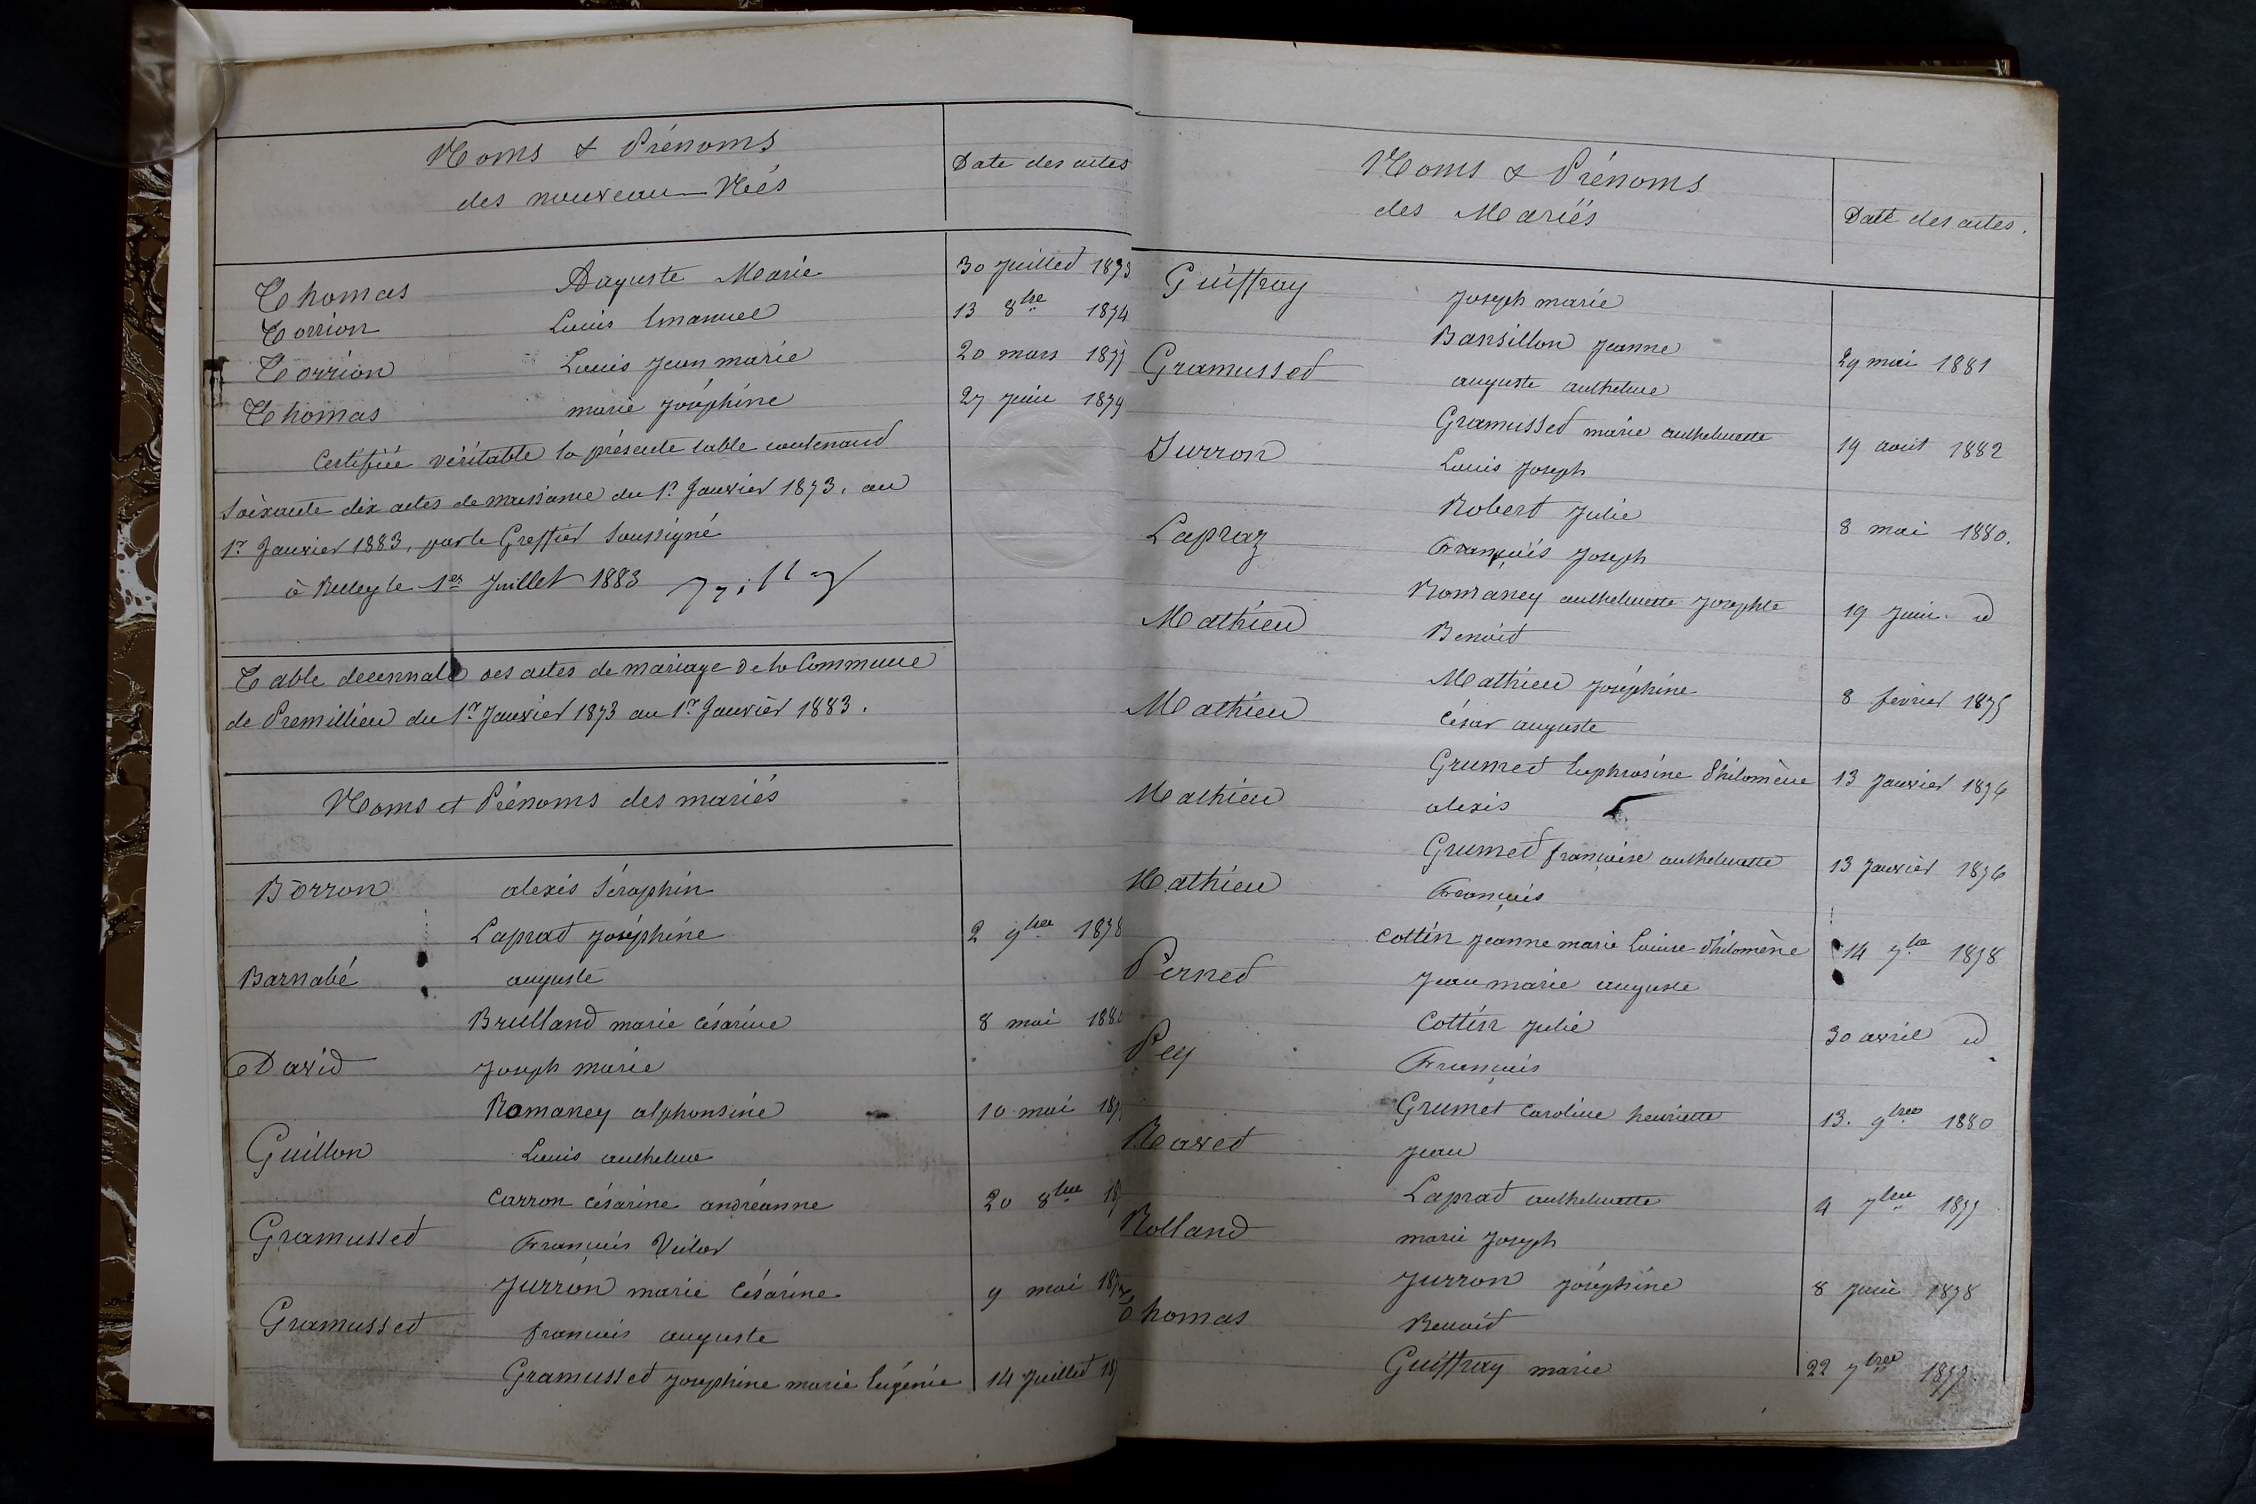 Noms & Prénoms
des nouveau-Nés
Date des actes
Thomas Auguste Marie 30 Juillet 1873
Torrion Louis Emanuel 13 8bre 1874
Torrion Louis Jean marie 20 mars 1877
Thomas marie Joséphine 27 Juin 1879
Certifiée véritable la présente table contenant
soixante dix actes de naissance du 1r Janvier 1873, au
1r Janvier 1883, par le Greffier soussigné
à Belley le 1er Juillet 1883
Table decennale des actes de mariage de la Commune
de Premillieu du 1r Janvier 1873 au 1r Janvier 1883.
Noms et Prénoms des mariés
Borron alexis Séraphin
Laprat Joséphine 2 9bre 1878
Barnabé auguste
Brulland marie Césarine 8 mai 188
David Joseph marie
Romaney alphonsine 10 mai 187
Guillon Louis anthelme
Carron Césarine andréanne 20 8bre 18
Gramusset François Victor
Jurron marie Césarine 9 mai 187
Gramusset françois auguste
Gramusset Josephine marie Eugénie 14 Juillet 18
Noms & Prénoms
des Mariés
Date des actes.
Guiffray Joseph marie
Bansillon Jeanne 29 mai 1881
Gramusset auguste anthelme
Gramusset marie anthelmette 19 août 1882
Jurron Louis Joseph
Robert Julie 8 mai 1880.
Lapraz François Joseph
Romaney anthelmette Josephte 19 Juin. d
Mathieu Benoit
Mathieu Joséphine 8 février 1875
Mathieu César auguste
Grumet Euphrosine Philomène 13 Janvier 1876
Mathieu alexis
Grumet françoise anthelmette 13 Janvier 1876
Mathieu François
Cottin Jeanne marie Louise Philomène 14 7bre 1878
Pernet Jean marie auguste
Cottin Julie 30 avril d
Pey François
Grumet Caroline henriette 13. 9bre 1880
Ravet Jean
Laprat anthelmette 4 7bre 1877
Rolland marie Joseph
Jurron Joséphine 8 Juin 1878
Thomas Benoit
Guiffray marie 22 7bre 1877.